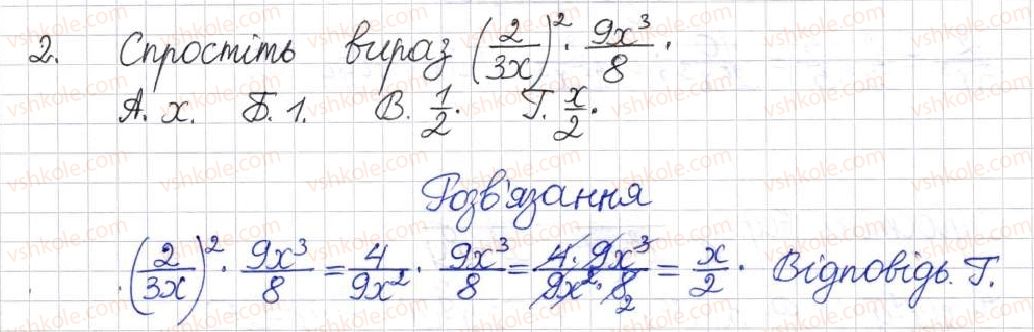 2. Спростіть вираз (2/3x)² · 9x³/8.
А. x. Б. 1. В. 1/2. Г. x/2.
Розв'язання
(2/3x)² · 9x³/8 = 4/9x² · 9x³/8 = 4 · 9x³/9x² · 8 2 = x/2. Відповідь. Г.